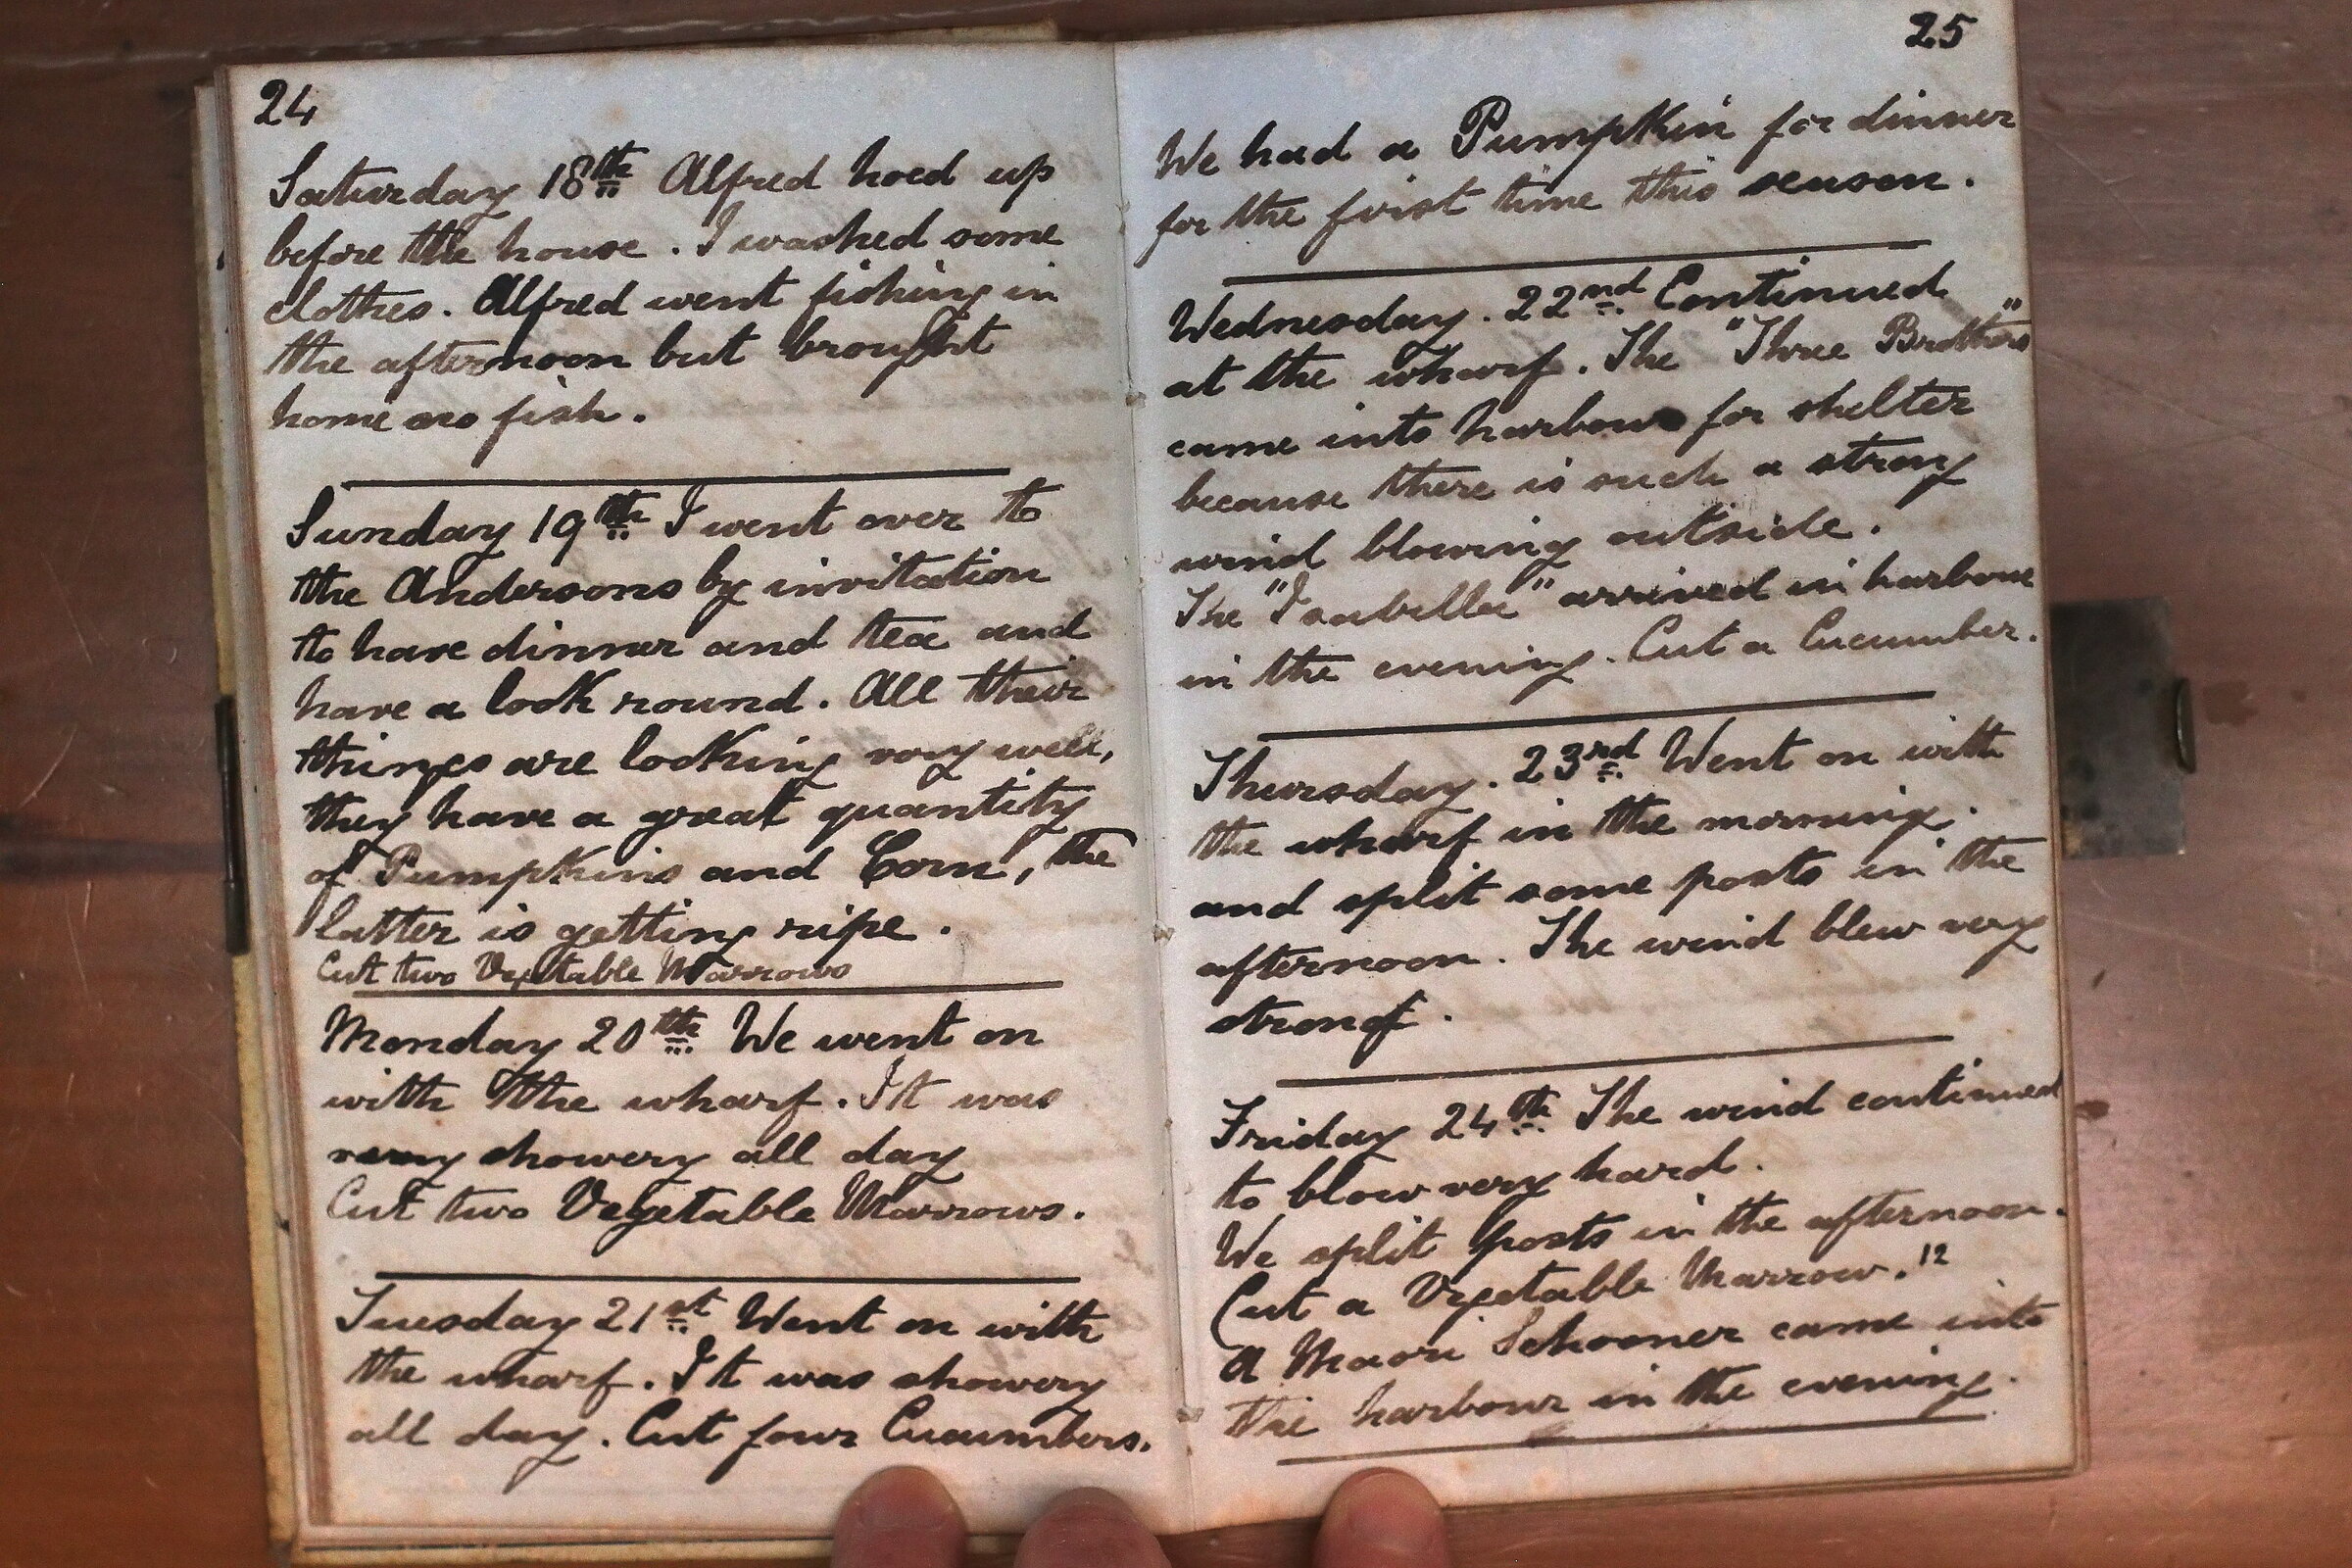 24
Saturday 18th Alfred hoed up
before the house. I washed some
clothes. Alfred went fishing in
the afternoon but brought
home no fish.
Sunday 19th I went over to
the Andersons by invitation
to have dinner and tea and
have a look round. All their
things are looking very well,
they have a great quantity
of Pumpkins and Corn, the
latter is getting ripe.
Cut two Vegetable Marrows
Monday 20th We went on
with the wharf. It was
very showery all day
Cut two Vegetable Marrows.
Tuesday 21st Went on with
the wharf. It was showery
all day. Cut four Cucumbers.
25
We had a Pumpkin for dinner
for the first time this season.
Wednesday. 22nd Continued
at the wharf. The "Three Brothers"
came into harbour for shelter
because there is such a strong
wind blowing outside.
The "Isabella" arrived in harbour
in the evening. Cut a Cucumber.
Thursday. 23rd Went on with
the wharf in the morning.
and split some posts in the
afternoon. The wind blew very
strong.
Friday 24th The wind continued
to blow very hard.
We split posts in the afternoon.
Cut a Vegetable Marrow. 12
A Maori Schooner came into
the harbour in the evening.